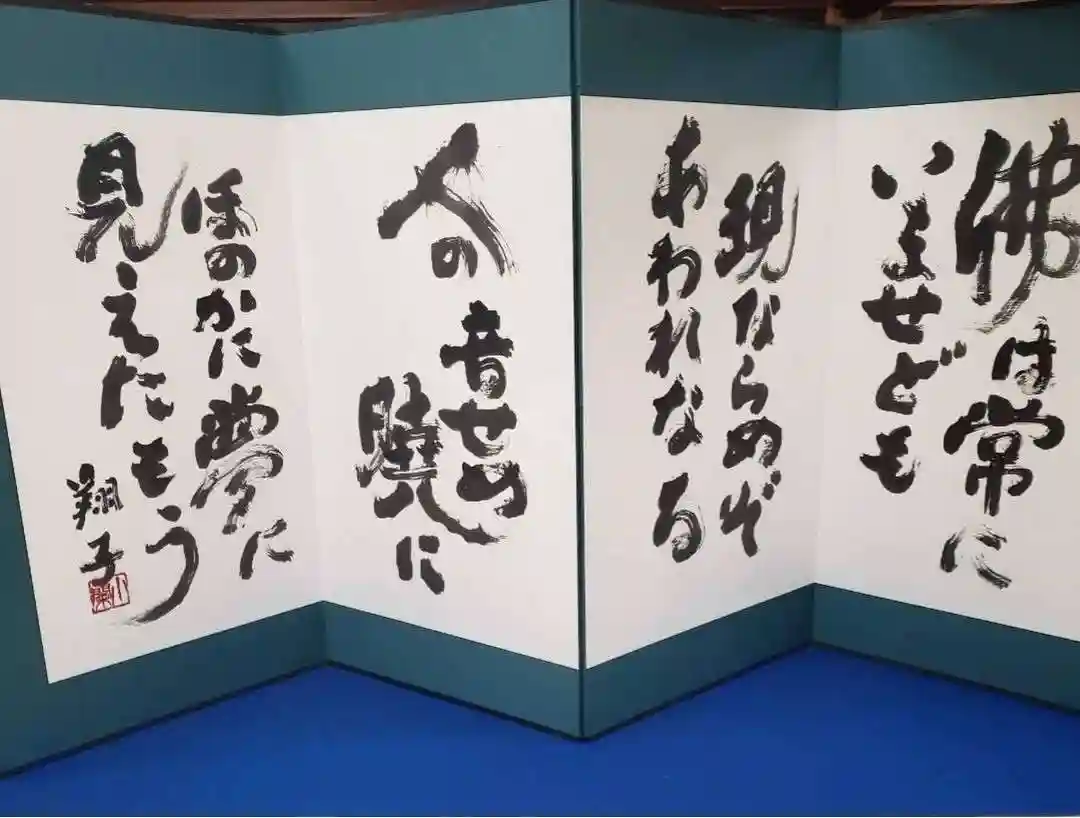 佛は常に
いませども
現ならぬぞ
あわれなる
人の
音せぬ
曉に
ほのかに夢に
見えたもう
翔子
小蘭